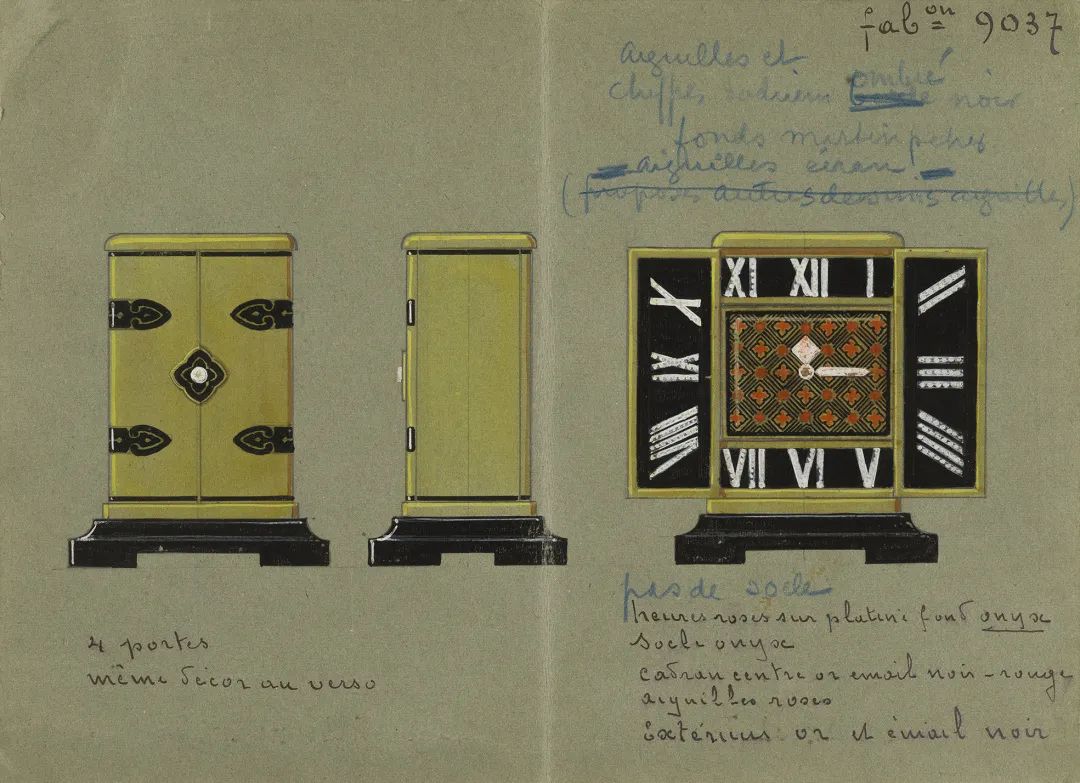 fab^on 9037
aiguilles et
chiffres ombré noir
fonds martin pêcheur
aiguilles écran
(proposer autres dessins aiguilles)
XI XII I
X II
IX III
VIII IIII
VII VI V
pas de socle
heures roses sur platine fond onyx
socle onyx
cadran centre or email noir-rouge
aiguilles roses
Extérieur or et émail noir
4 portes
même décor au verso